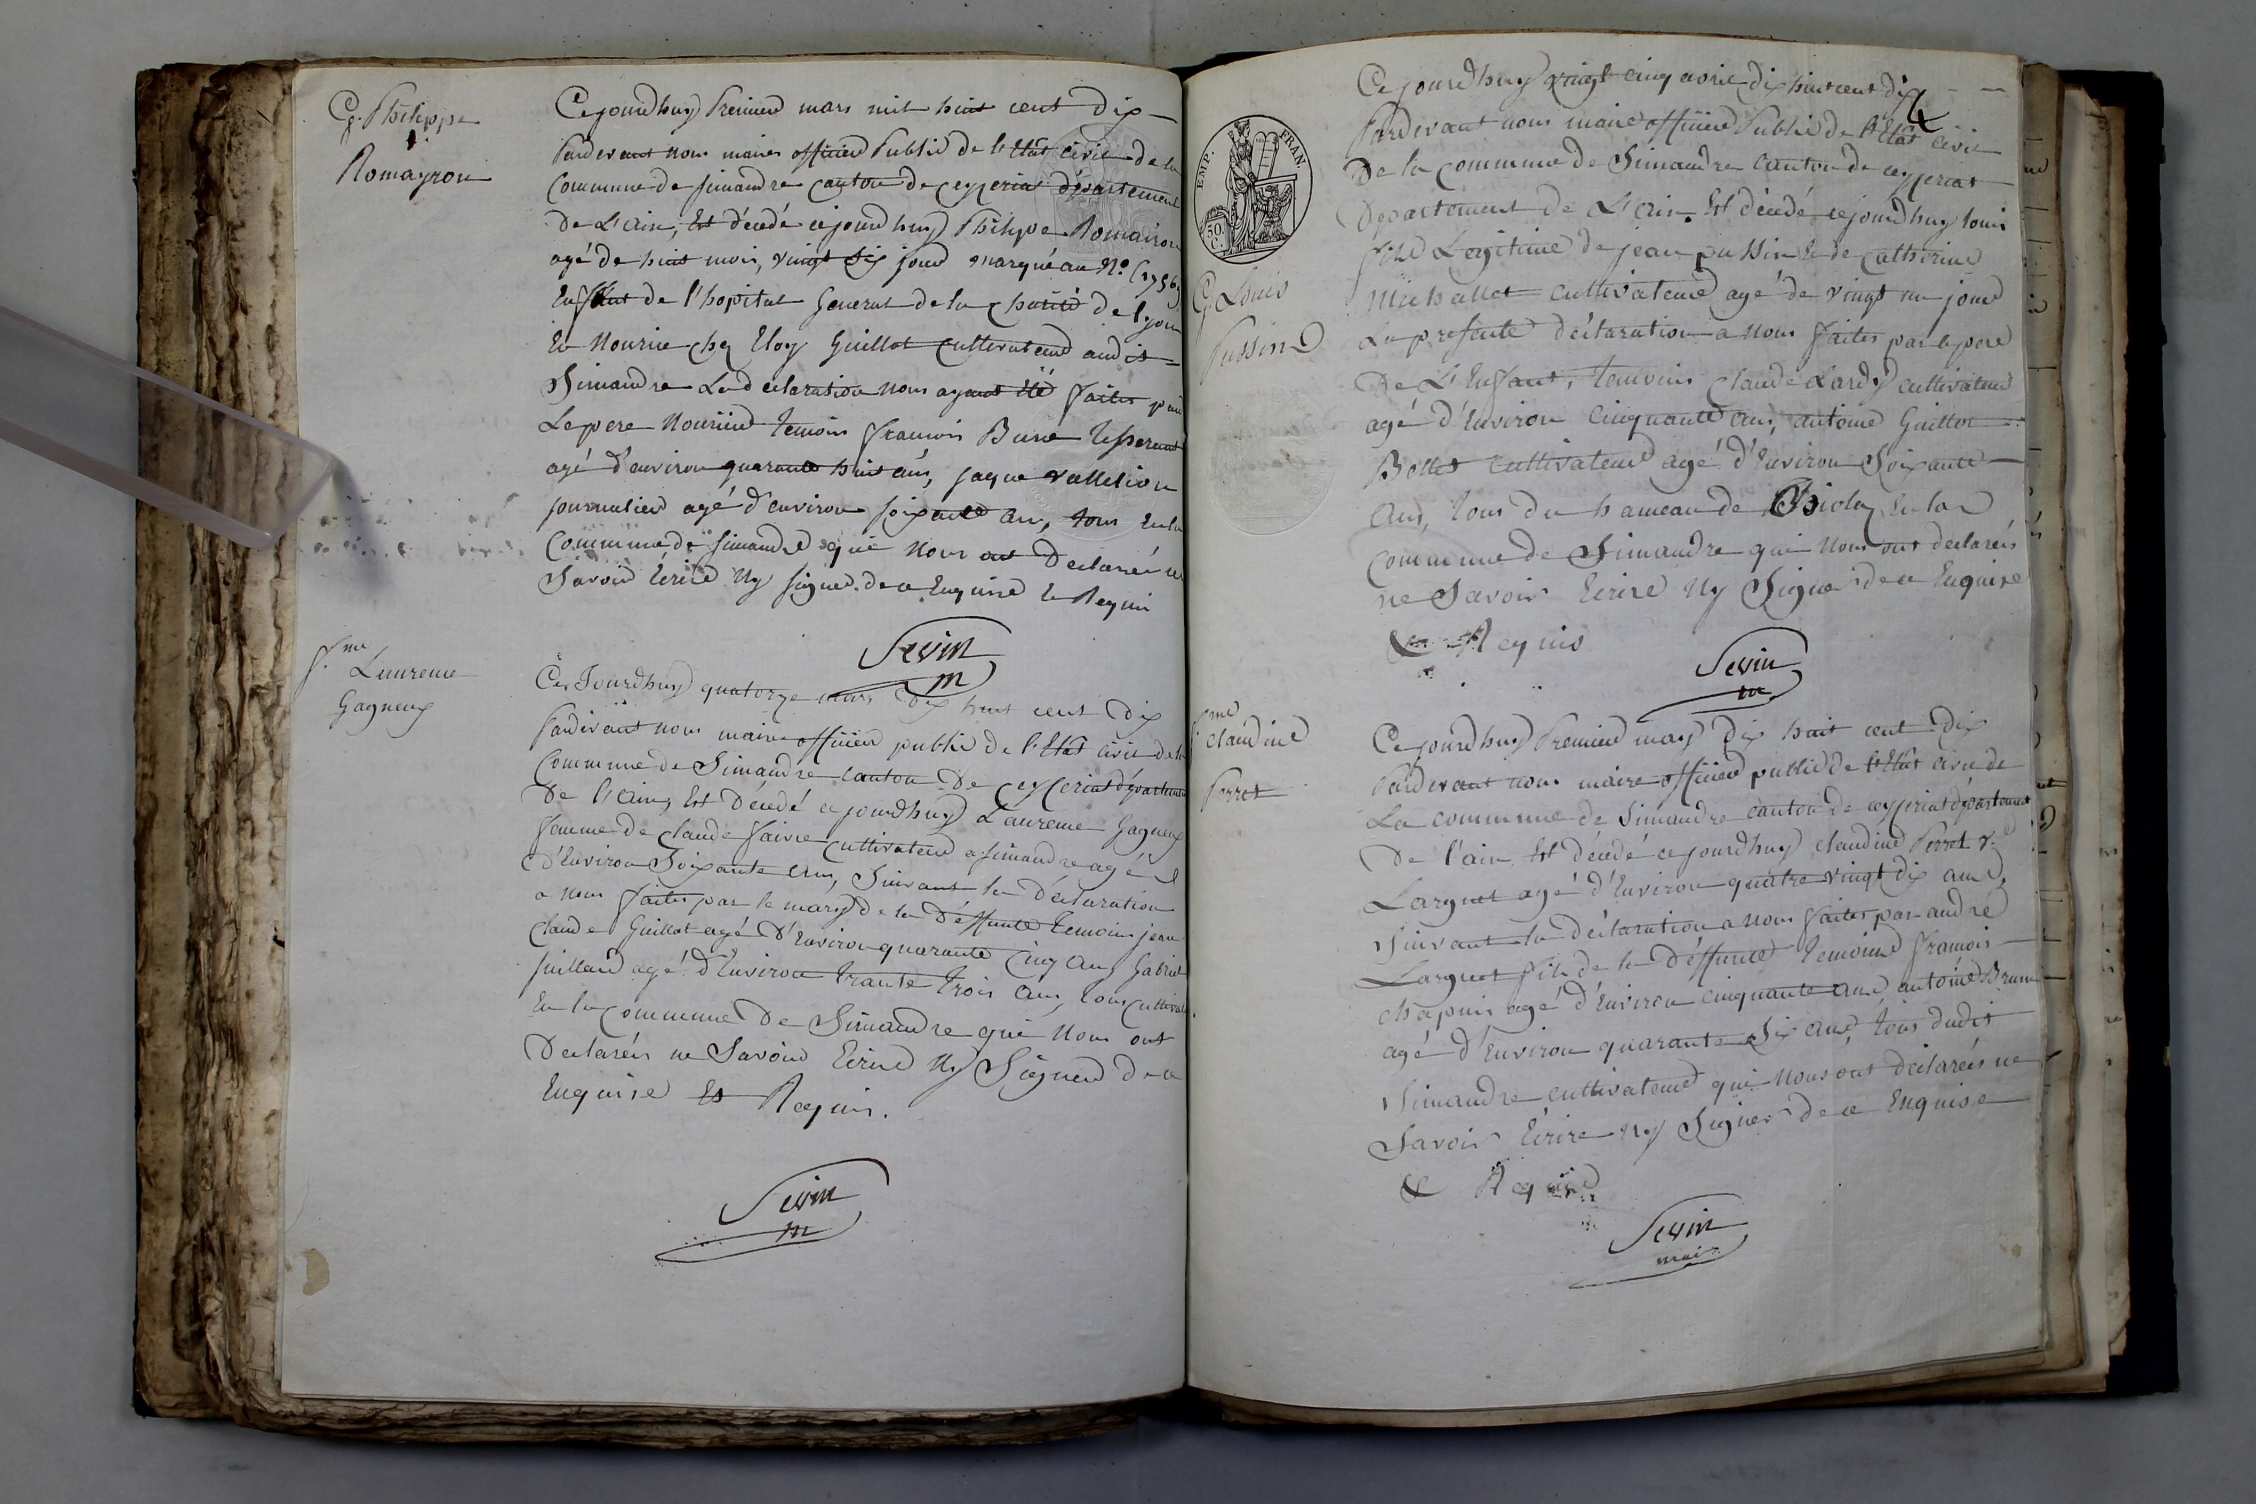 G. Philippe
Romayron
Cejourdhuy Premier mars mil huit cent dix
Pardevant nous maire officier Public de l'Etat civil de la
Commune de simandre canton de ceyzeriat département
De L'ain, Est décédé cejourdhuy Philipe Romairon
agé de huit mois, vingt six jour marqué au N.°
Enffant de l'hopital General de la Charité de lyon
En Nourice chez Eloy Guillot cultivateur audit
Simandre La declaration nous ayant été faites par
Le pere Nouricier temoins francois Tisserant
agé d'environ quarante huit ans, jaque vallelion
journalier agé d'environ soixante ans, tous en la
Commune de simandre qui nous ont Déclarér ne
Savoir Ecrire Ny signer. de ce Enquise Et Requis
Sevin
m
f.me
Laurence
Gagneux
Ce Jourdhuy quatorze mars Dix huit cent Dix
Pardevant nous maire officier public de l'Etat civil de la
Commune de Simandre canton De ceyzeriat département
De l'ain, Est Décédé cejourdhuy Laurence Gagneux
femme de claude faivre cultivateur a simandre agé
D'Environ Soixante ans, Suivant la Déclaration
a nous faites par le mary de la Déffunte Temoins jean
claude Guillot agé D'Environ quarante Cinq ans Gabriel
juillard agé d'Environ trante trois ans, tous
En la commune De Simandre qui Nous ont
Declarés ne Savoir Ecrire Ny Signer De ce
Enquise Et Requis.
Sevin
m
EMP. FRAN.
50.
C.
G Louis
Pussin
Cejourdhuy vingt cinq avril dix huit cent dix
Pardevant nous maire officier Public de l'Etat civil
De la commune de Simandre canton de ceyzeriat
Département de L'ain. Est décédé cejourdhuy louis
fils Legitime de jean pussin & de catherine
Michallet cultivateur agé de vingt un jour
La presente déclaration a nous faites par le pere
De L'Enfant, temoins claude Lardy cultivateur
agé d'Environ Cinquante ans, antoine Guillot
Bollet cultivateur agé d'Environ Soixante
Ans, tous du hameau de En la
commune de Simandre qui Nous ont declarés
ne Savoir Ecrire Ny Signer de ce Enquise
& Requis
Sevin
m
f.me
claudine
Perret
Cejourdhuy Premier may dix huit cent Dix
Pardevant nous maire officier public de l'Etat civil de
La commune de Simandre canton de ceyzeriat département
De l'ain Est décédé cejourdhuy claudine Perret v.e
Larguet agé d'Environ quatre vingt dix ans,
Suivant la déclaration a nous faites par andré
Larguet fils de la Déffunte temoins francois
chapuis agé d'Environ cinquante ans antoine
agé d'Environ quarante Six ans, tous dudit
Simandre cultivateur qui Nous ont déclarés ne
Savoir Ecrire Ny Signer de ce Enquise
& Requis
Sevin